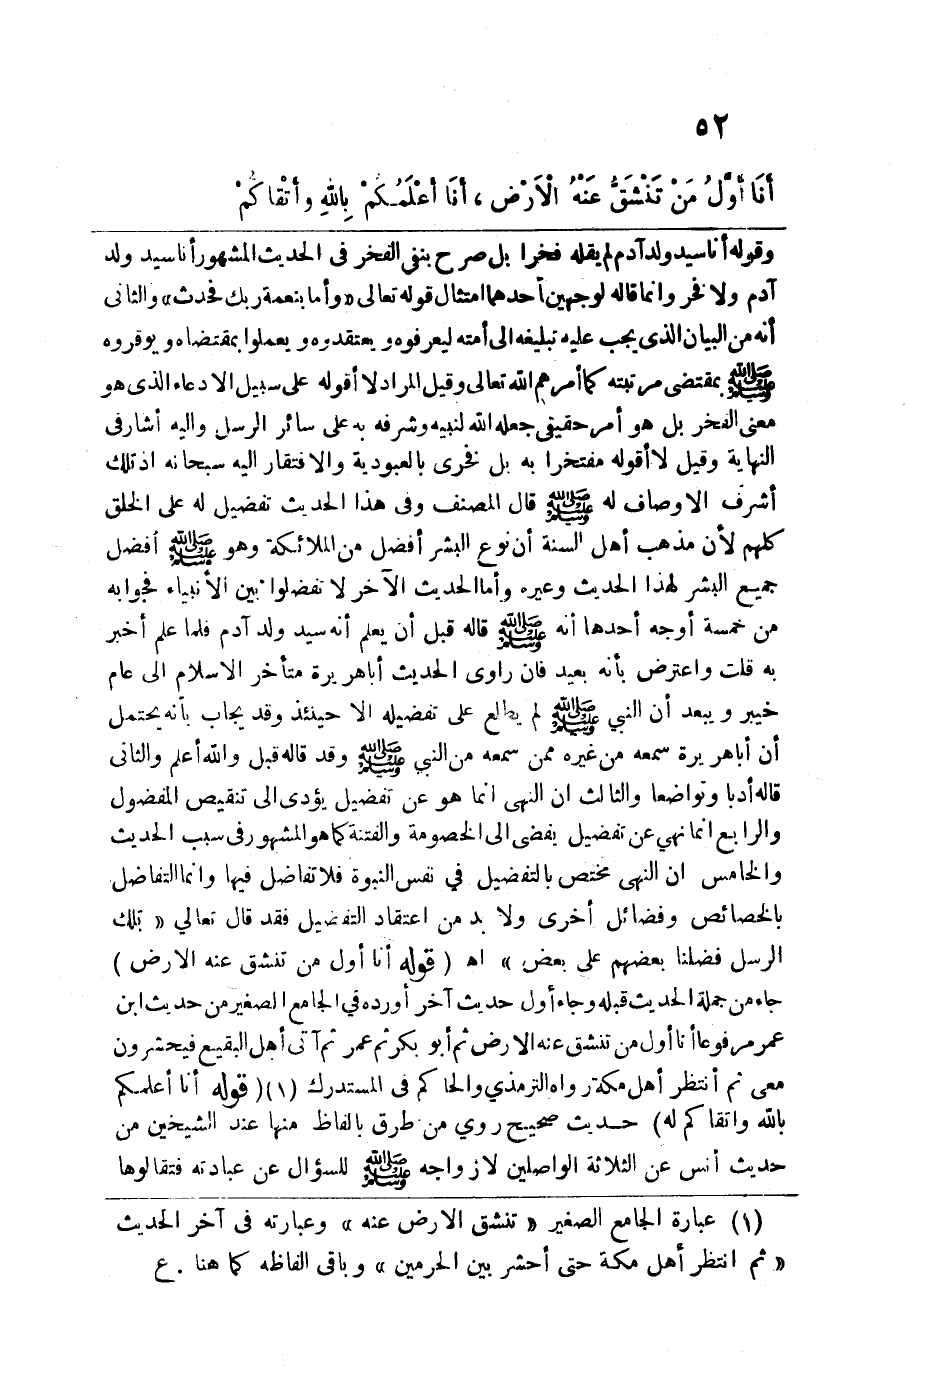 ٥٢
أَنَا أَوَّلُ مَنْ تَنْشَقُّ عَنْهُ الْأَرْض ، أَنَا أَعْلَمُـكُمْ بِاللهِ وأَتْقاكُمْ
وقوله أنا سيد ولد آدم لم يقله فخرا بل صرح بنفى الفخر فى الحديث المشهور أنا سيد ولد
آدم ولا فخر وانما قاله لوجهين أحدهما امتثال قوله تعالى «وأما بنعمة ربك فحدث» والثانى
أنه من البيان الذى يجب عليه تبليغه الى أمته ليعرفوه ويعتقدوه ويعملوا بمقتضاه ويوقروه
ﷺ بمقتضى مرتبته كما أمرهم الله تعالى وقيل المراد لا أقوله على سبيل الادعاء الذى هو
معنى الفخر بل هو أمر حقيقى جعله الله لنبيه وشرفه به على سائر الرسل واليه أشار فى
النهاية وقيل لا أقوله مفتخرا به بل فخرى بالعبودية والافتقار اليه سبحانه اذ تلك
أشرف الاوصاف له ﷺ قال المصنف وفى هذا الحديث تفضيل له على الخلق
كلهم لأن مذهب أهل السنة أن نوع البشر أفضل من الملائكة وهو ﷺ أفضل
جميع البشر لهذا الحديث وغيره وأما الحديث الآخر لا تفضلوا بين الأنبياء فجوابه
من خمسة أوجه أحدها أنه ﷺ قاله قبل أن يعلم أنه سيد ولد آدم فلما علم أخبر
به قلت واعترض بأنه بعيد فان راوى الحديث أباهريرة متأخر الاسلام الى عام
خيبر ويبعد أن النبي ﷺ لم يطلع على تفضيله الا حينئذ وقد يجاب بأنه يحتمل
أن أباهريرة سمعه من غيره ممن سمعه من النبي ﷺ وقد قاله قبل والله أعلم والثانى
قاله أدبا وتواضعا والثالث ان النهى انما هو عن تفضيل يؤدى الى تنقيص المفضول
والرابع انما نهي عن تفضيل يفضى الى الخصومة والفتنة كما هو المشهور فى سبب الحديث
والخامس ان النهى مختص بالتفضيل في نفس النبوة فلا تفاضل فيها وانما التفاضل
بالخصائص وفضائل أخرى ولا بد من اعتقاد التفضيل فقد قال تعالي « تلك
الرسل فضلنا بعضهم على بعض » اه ( قوله أنا أول من تنشق عنه الارض )
جاء من جملة الحديث قبله وجاء أول حديث آخر أورده في الجامع الصغير من حديث ابن
عمر مرفوعا أنا أول من تنشق عنه الارض ثم أبو بكر ثم عمر ثم آتى أهل البقيع فيحشرون
معى ثم أنتظر أهل مكة رواه الترمذي والحاكم فى المستدرك (١)( قوله أنا أعلمكم
بالله واتقاكم له) حـديث صحيح روي من طرق بالفاظ منها عند الشيخين من
حديث أنس عن الثلاثة الواصلين لازواجه ﷺ للسؤال عن عبادته فتقالوها
(١) عبارة الجامع الصغير « تنشق الارض عنه » وعبارته فى آخر الحديث
« ثم انتظر أهل مكة حتى أحشر بين الحرمين » وباقى الفاظه كما هنا . ع